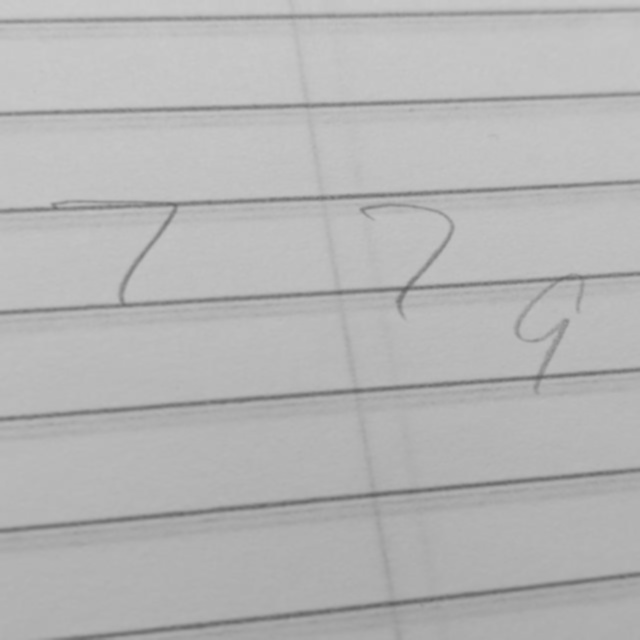 7 7 9